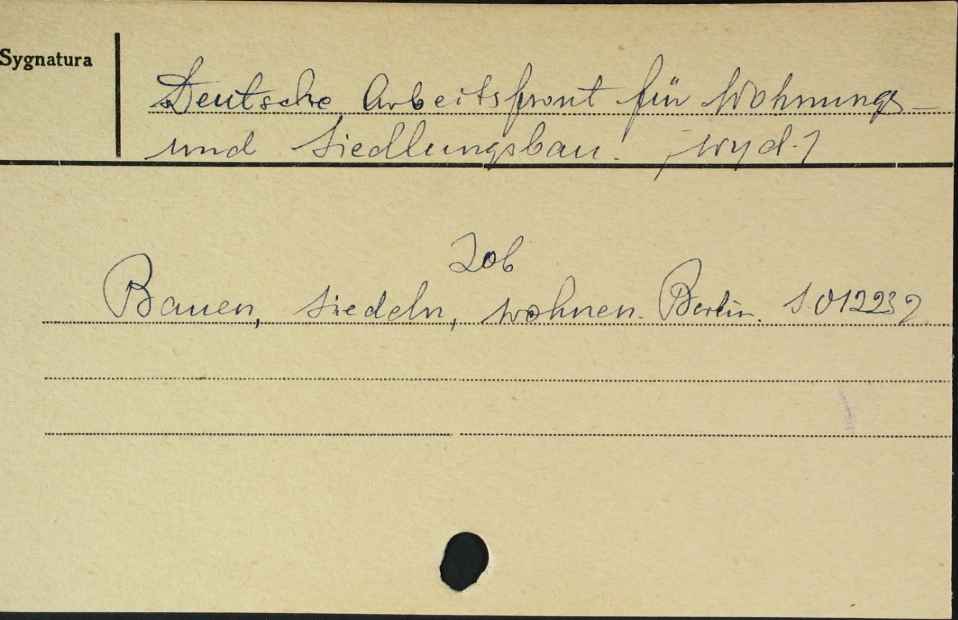 Sygnatura
Deutsche Arbeitsfront für Wohnungs-
und Siedlungsbau. /wyd./
Zob
Bauen, siedeln, wohnen. Berlin. S. 012239